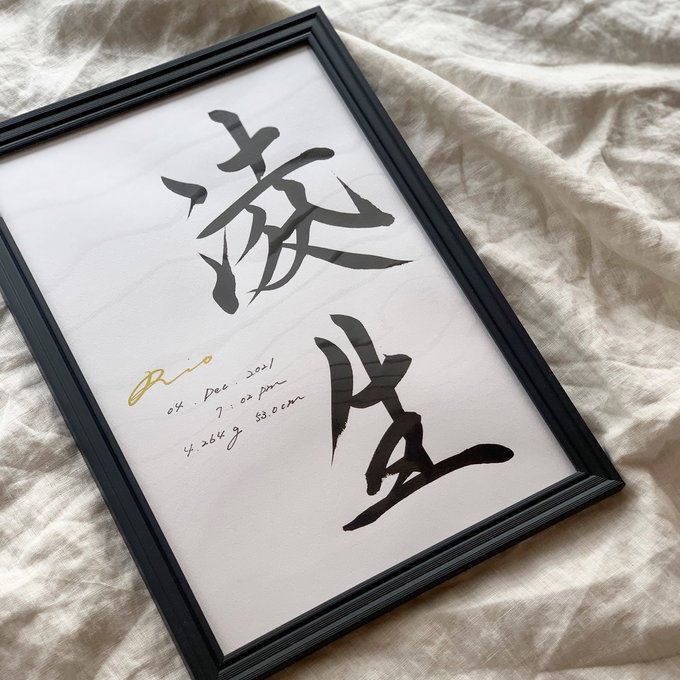 凌生
Rio
04. Dec. 2021
7:02 pm
4.264g 53.0cm